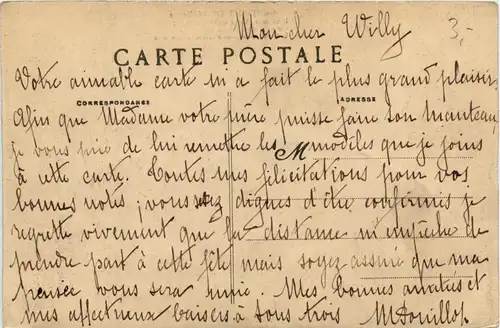 Mon cher Willy
3,-
CARTE POSTALE
Votre aimable carte m'a fait le plus grand plaisir.
CORRESPONDANCE
ADRESSE
Afin que Madame votre mère puisse faire son manteau
je vous prie de lui remettre les M modèles que je joins
à cette carte. Toutes mes félicitations pour vos
bonnes notes; vous dignes d'être confirmés je
regrette vivement que la distance m'empêche de
prendre part à cette fête mais soyez assuré que ma
pensée vous sera unie. Mes bonnes amitiés et
mes affectueux baisers à tous trois